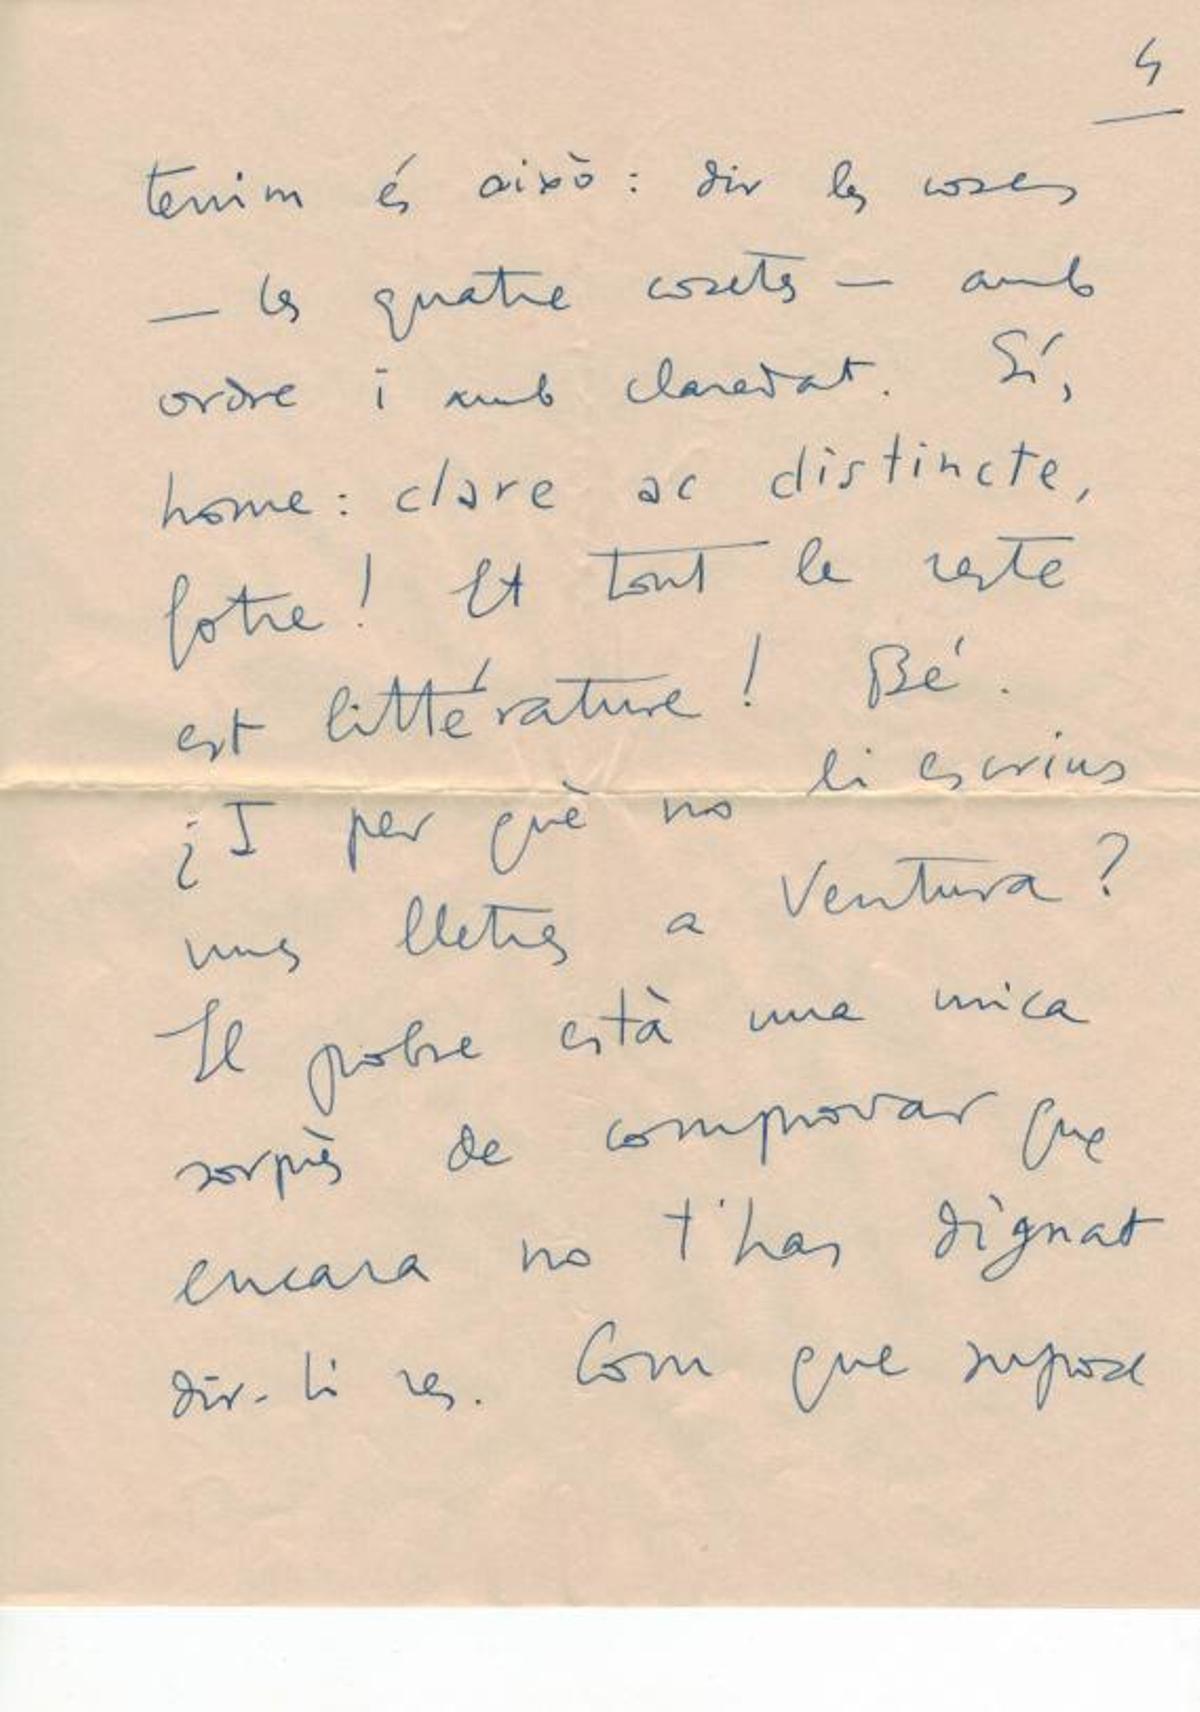 4
tenim és això: dir les coses
— les quatre cosetes — amb
ordre i amb claredat. Sí,
home: clare ac distincte,
fotre! Et tout le reste
est littérature! Bé.
¿I per què no li escrius
unes lletres a Ventura?
El pobre està una mica
sorprès de comprovar que
encara no t'has dignat
dir-li res. Com que supose